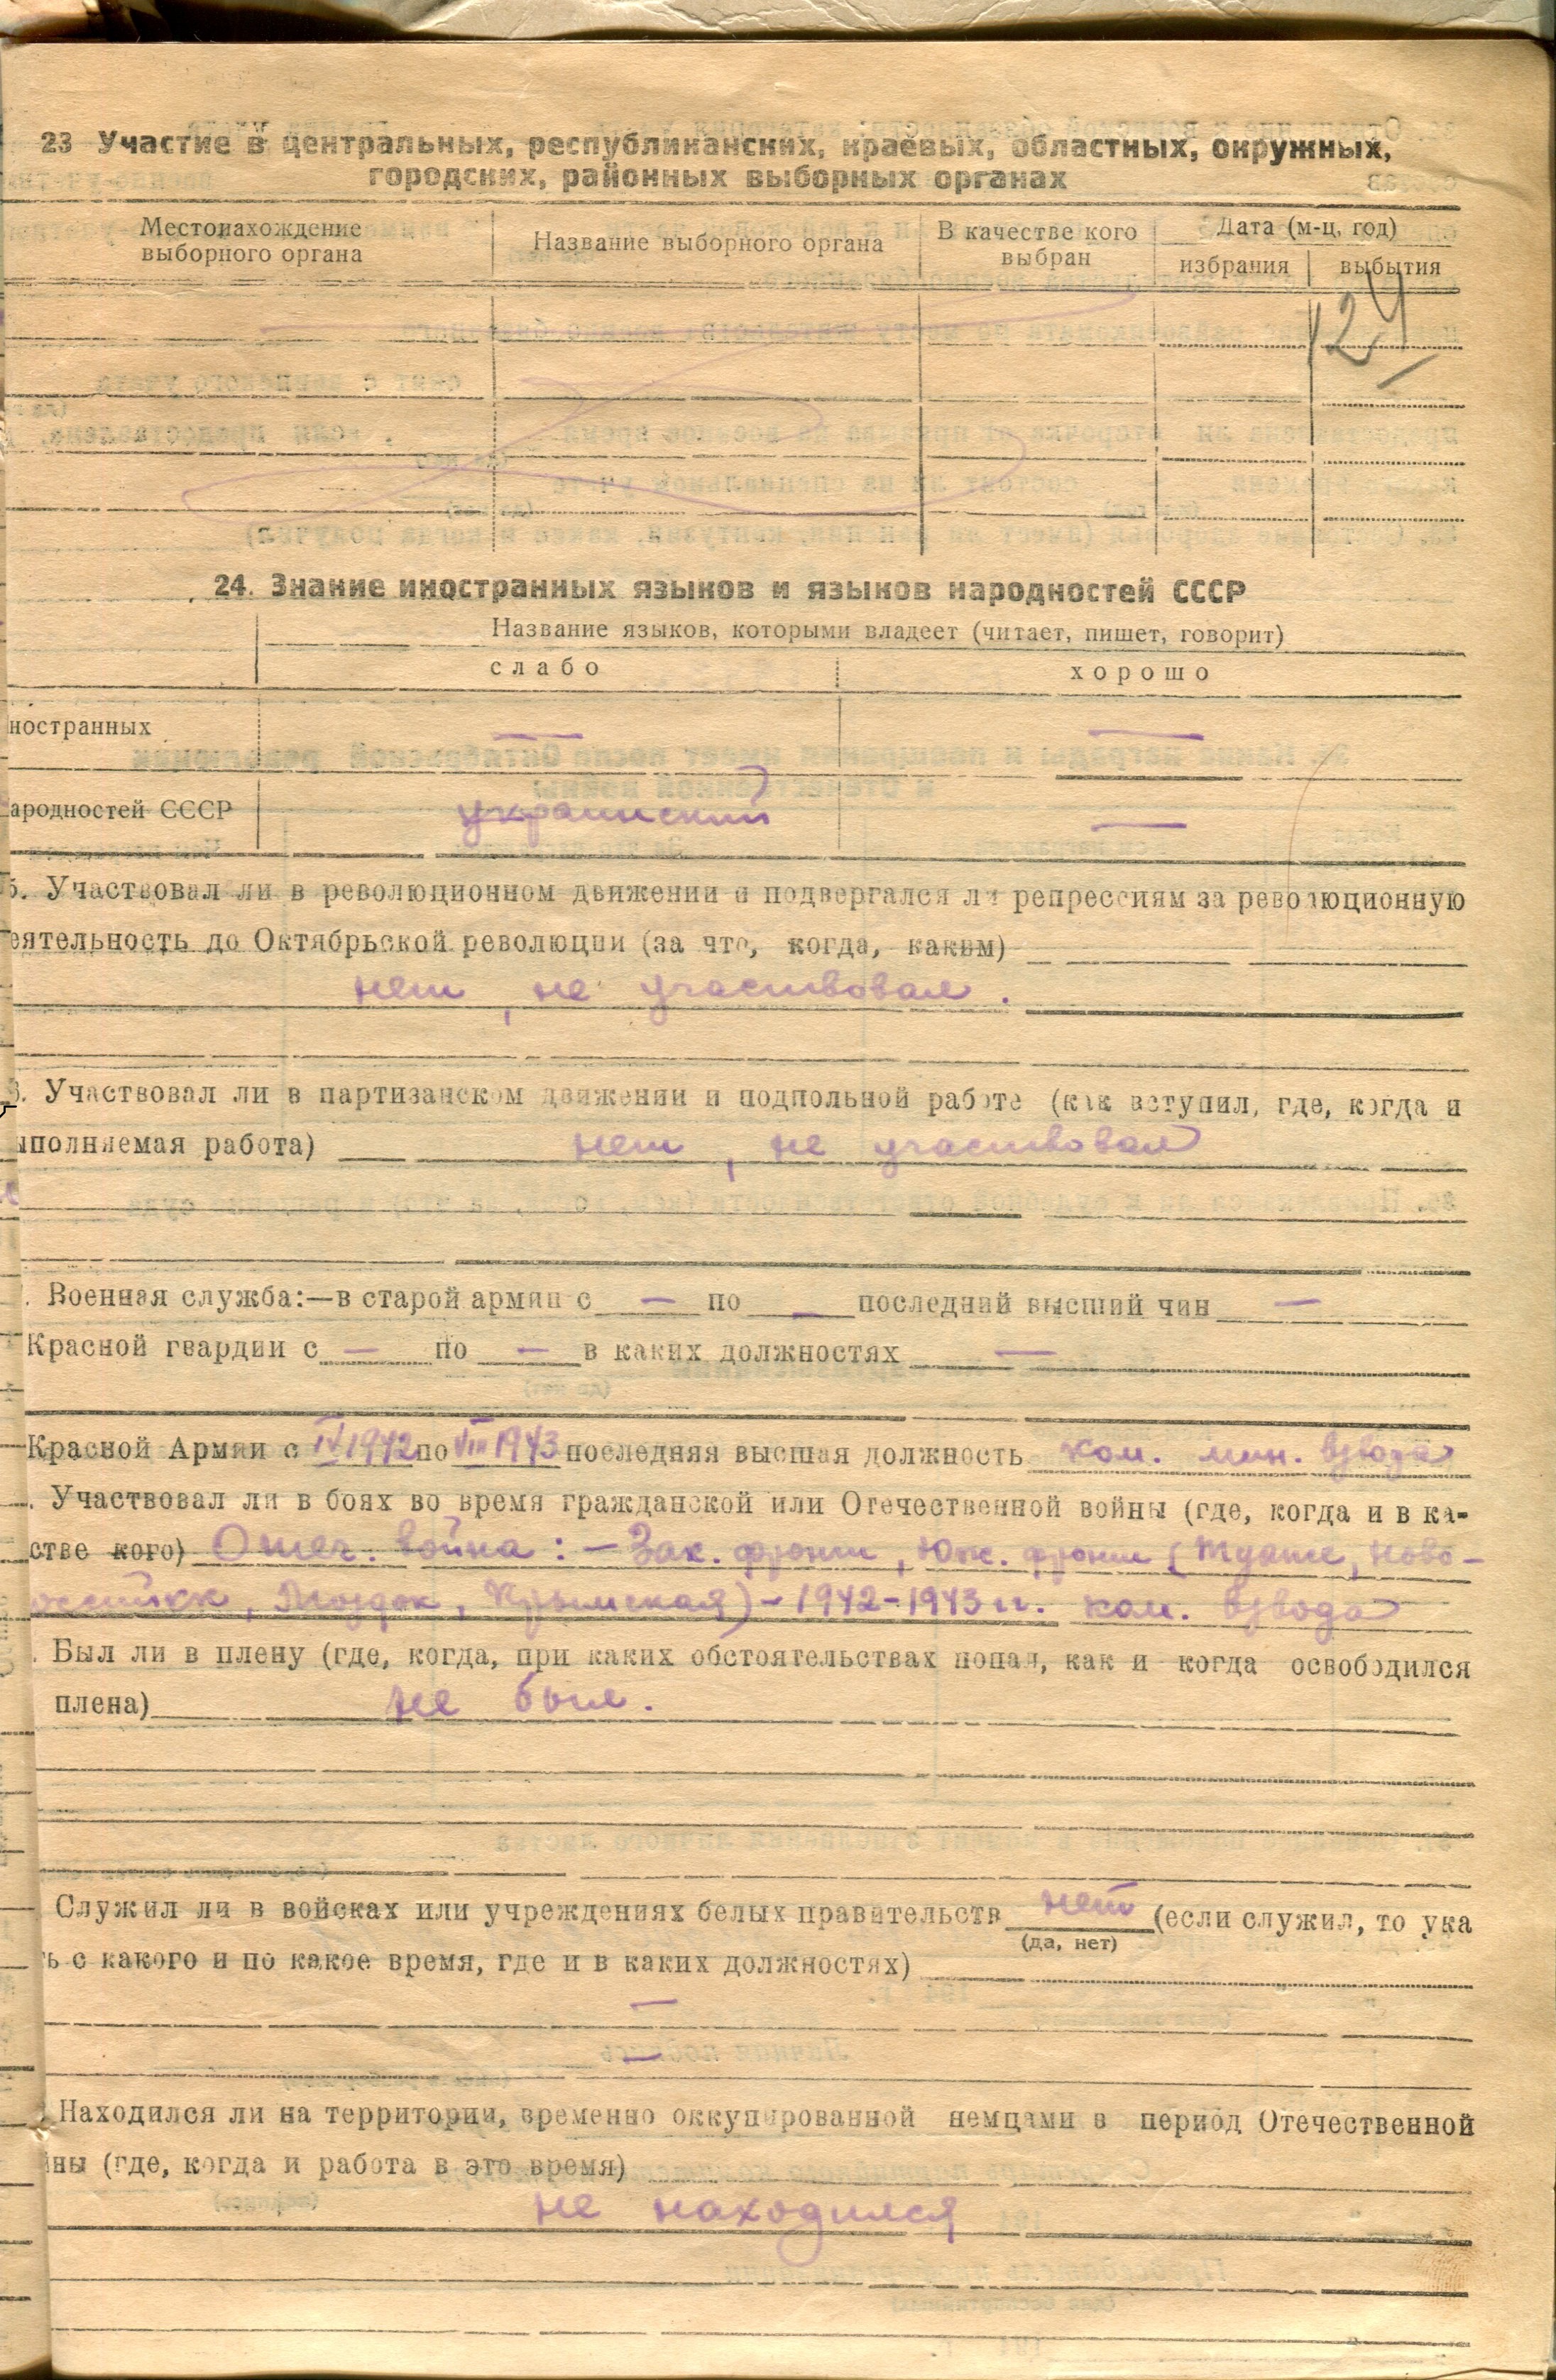 23 Участие в центральных, республиканских, краевых, областных, окружных,
городских, районных выборных органах
Местонахождение
выборного органа
Название выборного органа
В качестве кого
выбран
Дата (м-ц, год)
избрания
выбытия
24. Знание иностранных языков и языков народностей СССР
Название языков, которыми владеет (читает, пишет, говорит)
слабо
хорошо
ностранных — —
ародностей СССР украинский —
5. Участвовал ли в революционном движении и подвергался ли репрессиям за революционную
еятельность до Октябрьской революции (за что, когда, каким)
нет, не участвовал.
6. Участвовал ли в партизанском движении и подпольной работе (как вступил, где, когда и
ыполняемая работа) нет, не участвовал
. Военная служба:—в старой армии с — по — последний высший чин —
Красной гвардии с — по — в каких должностях —
Красной Армии с IV 1942 по VIII 1943 последняя высшая должность ком. мин. взвода
. Участвовал ли в боях во время гражданской или Отечественной войны (где, когда и в ка-
стве кого) Отеч. война: — Зак. фронт, Юж. фронт (Туапсе, Ново-
оссийск, Моздок, Крымская) - 1942-1943 гг. ком. взвода
. Был ли в плену (где, когда, при каких обстоятельствах попал, как и когда освободился
плена) не был.
Служил ли в войсках или учреждениях белых правительств нет (если служил, то ука
(да, нет)
ь с какого и по какое время, где и в каких должностях)
—
—
Находился ли на территории, временно оккупированной немцами в период Отечественной
йны (где, когда и работа в это время)
не находился